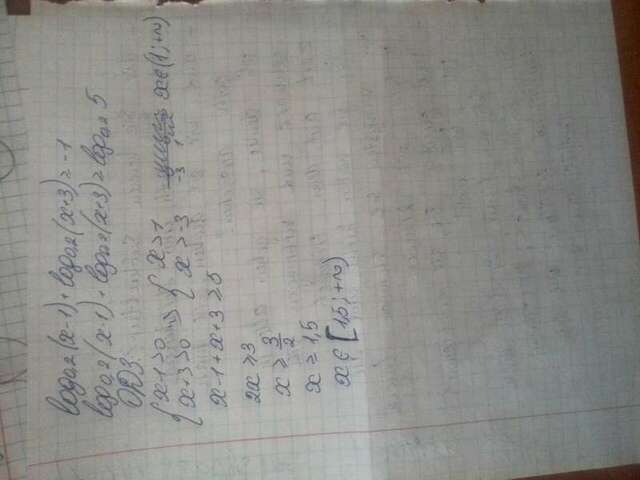 log₀,₂(x-1)+log₀,₂(x+3)≥-1
log₀,₂(x-1)+log₀,₂(x+3)≥log₀,₂5
ОДЗ
{x-1>0 {x>1
{x+3>0 => {x>-3 -3 1 x∈(1;+∞)
x-1+x+3≥5
2x≥3
x≥3/2
x≥1,5
x∈[1,5;+∞)